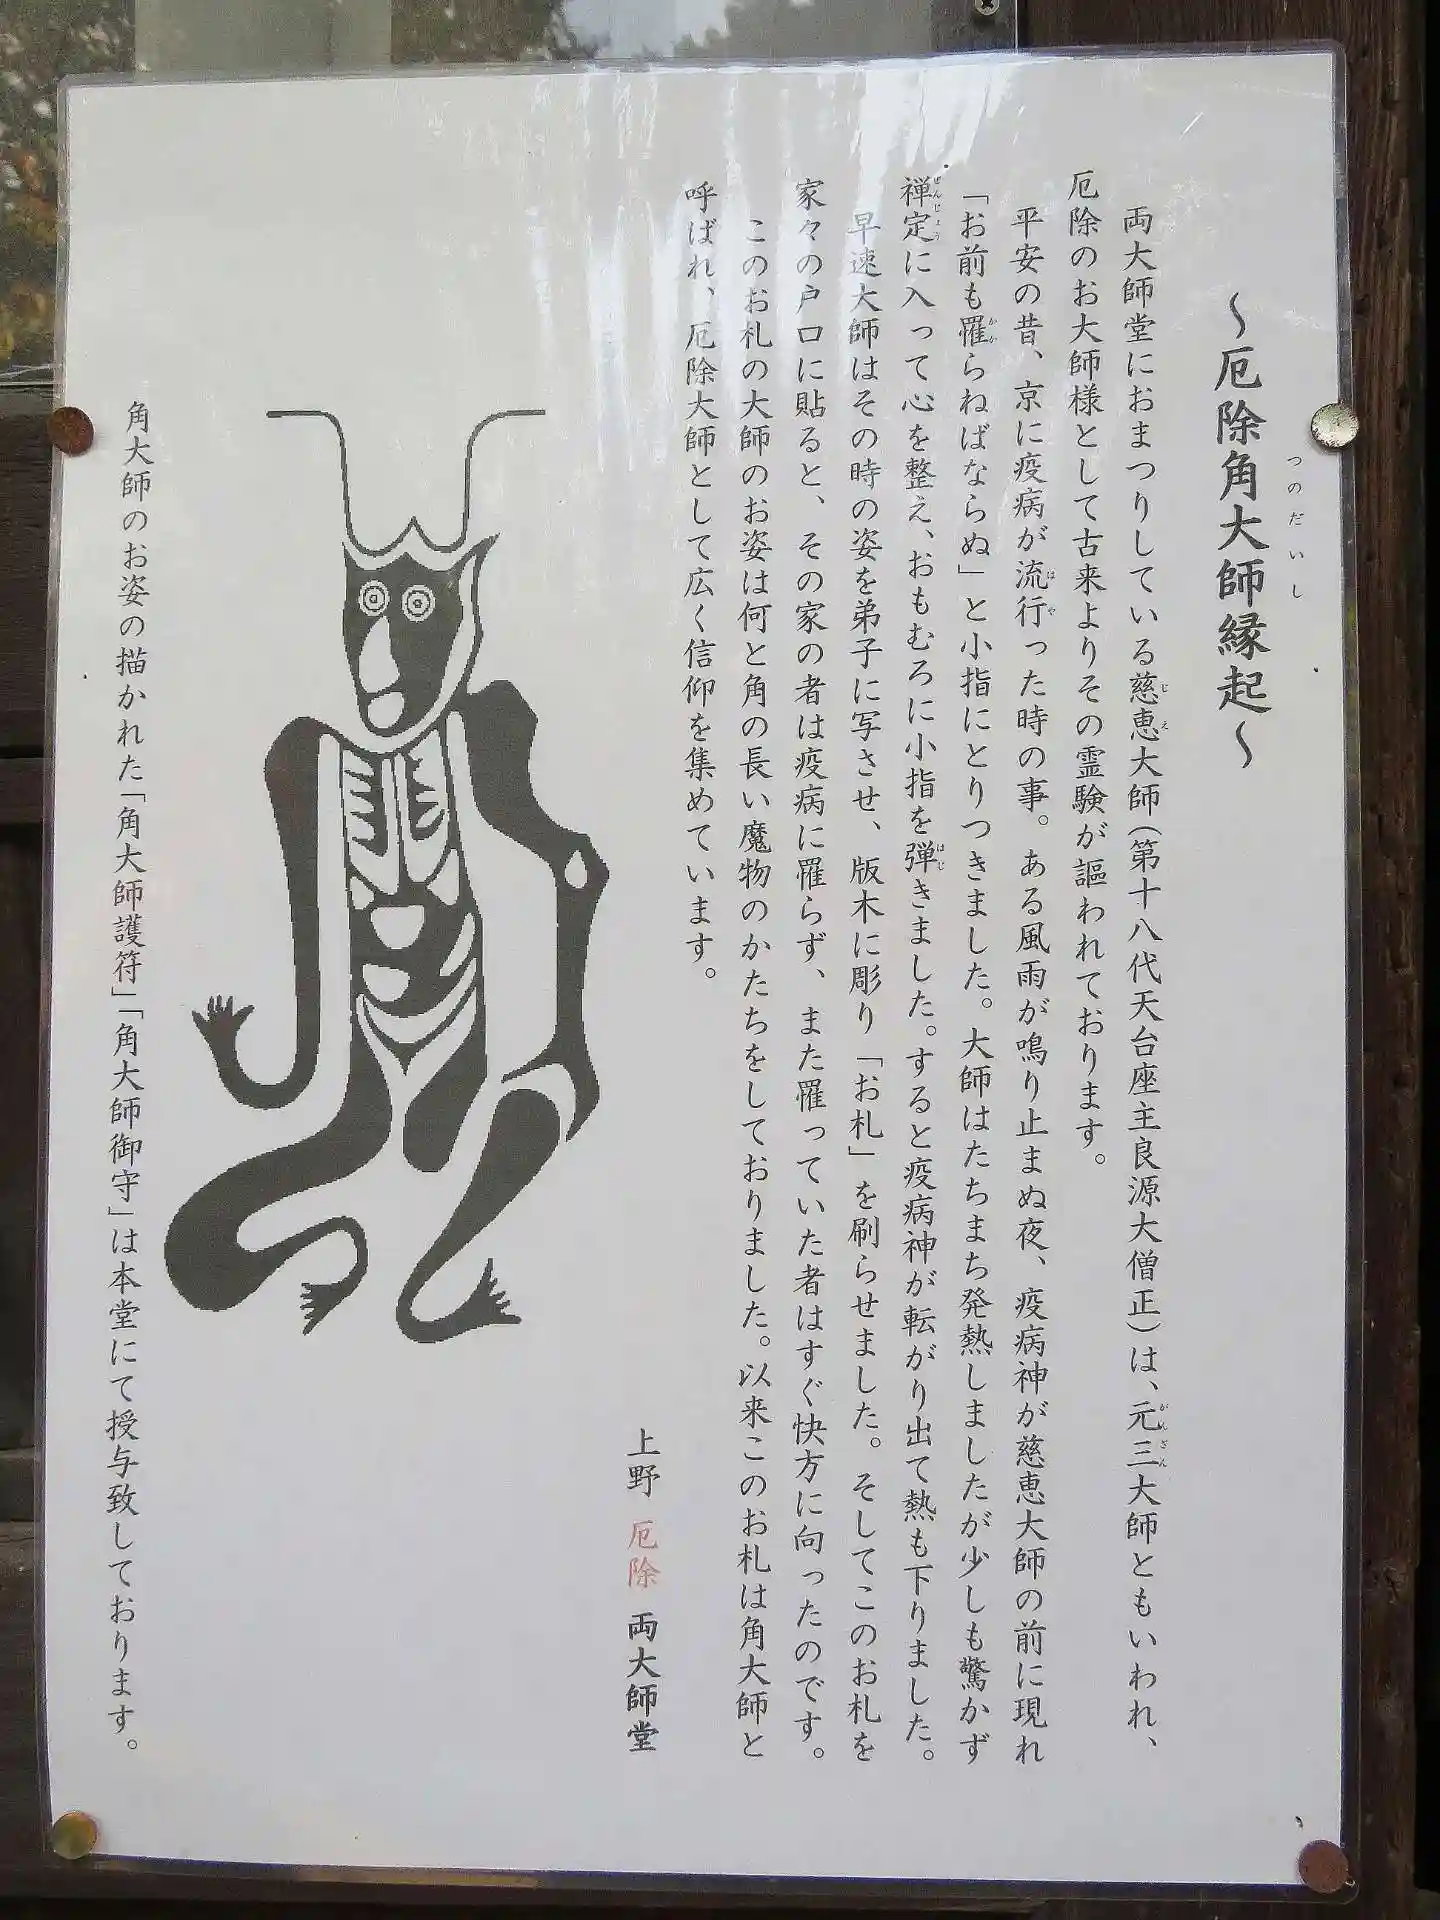 ～厄除角大師縁起～
つのだいし
両大師堂におまつりしている慈恵大師（第十八代天台座主良源大僧正）は、元三大師ともいわれ、
じえ
がんざん
厄除のお大師様として古来よりその霊験が謳われております。
平安の昔、京に疫病が流行った時の事。ある風雨が鳴り止まぬ夜、疫病神が慈恵大師の前に現れ
はや
「お前も罹らねばならぬ」と小指にとりつきました。大師はたちまち発熱しましたが少しも驚かず
かか
禅定に入って心を整え、おもむろに小指を弾きました。すると疫病神が転がり出て熱も下りました。
ぜんじょう
はじ
早速大師はその時の姿を弟子に写させ、版木に彫り「お札」を刷らせました。そしてこのお札を
家々の戸口に貼ると、その家の者は疫病に罹らず、また罹っていた者はすぐ快方に向ったのです。
このお札の大師のお姿は何と角の長い魔物のかたちをしておりました。以来このお札は角大師と
呼ばれ、厄除大師として広く信仰を集めています。
上野 厄除 両大師堂
角大師のお姿の描かれた「角大師護符」「角大師御守」は本堂にて授与致しております。